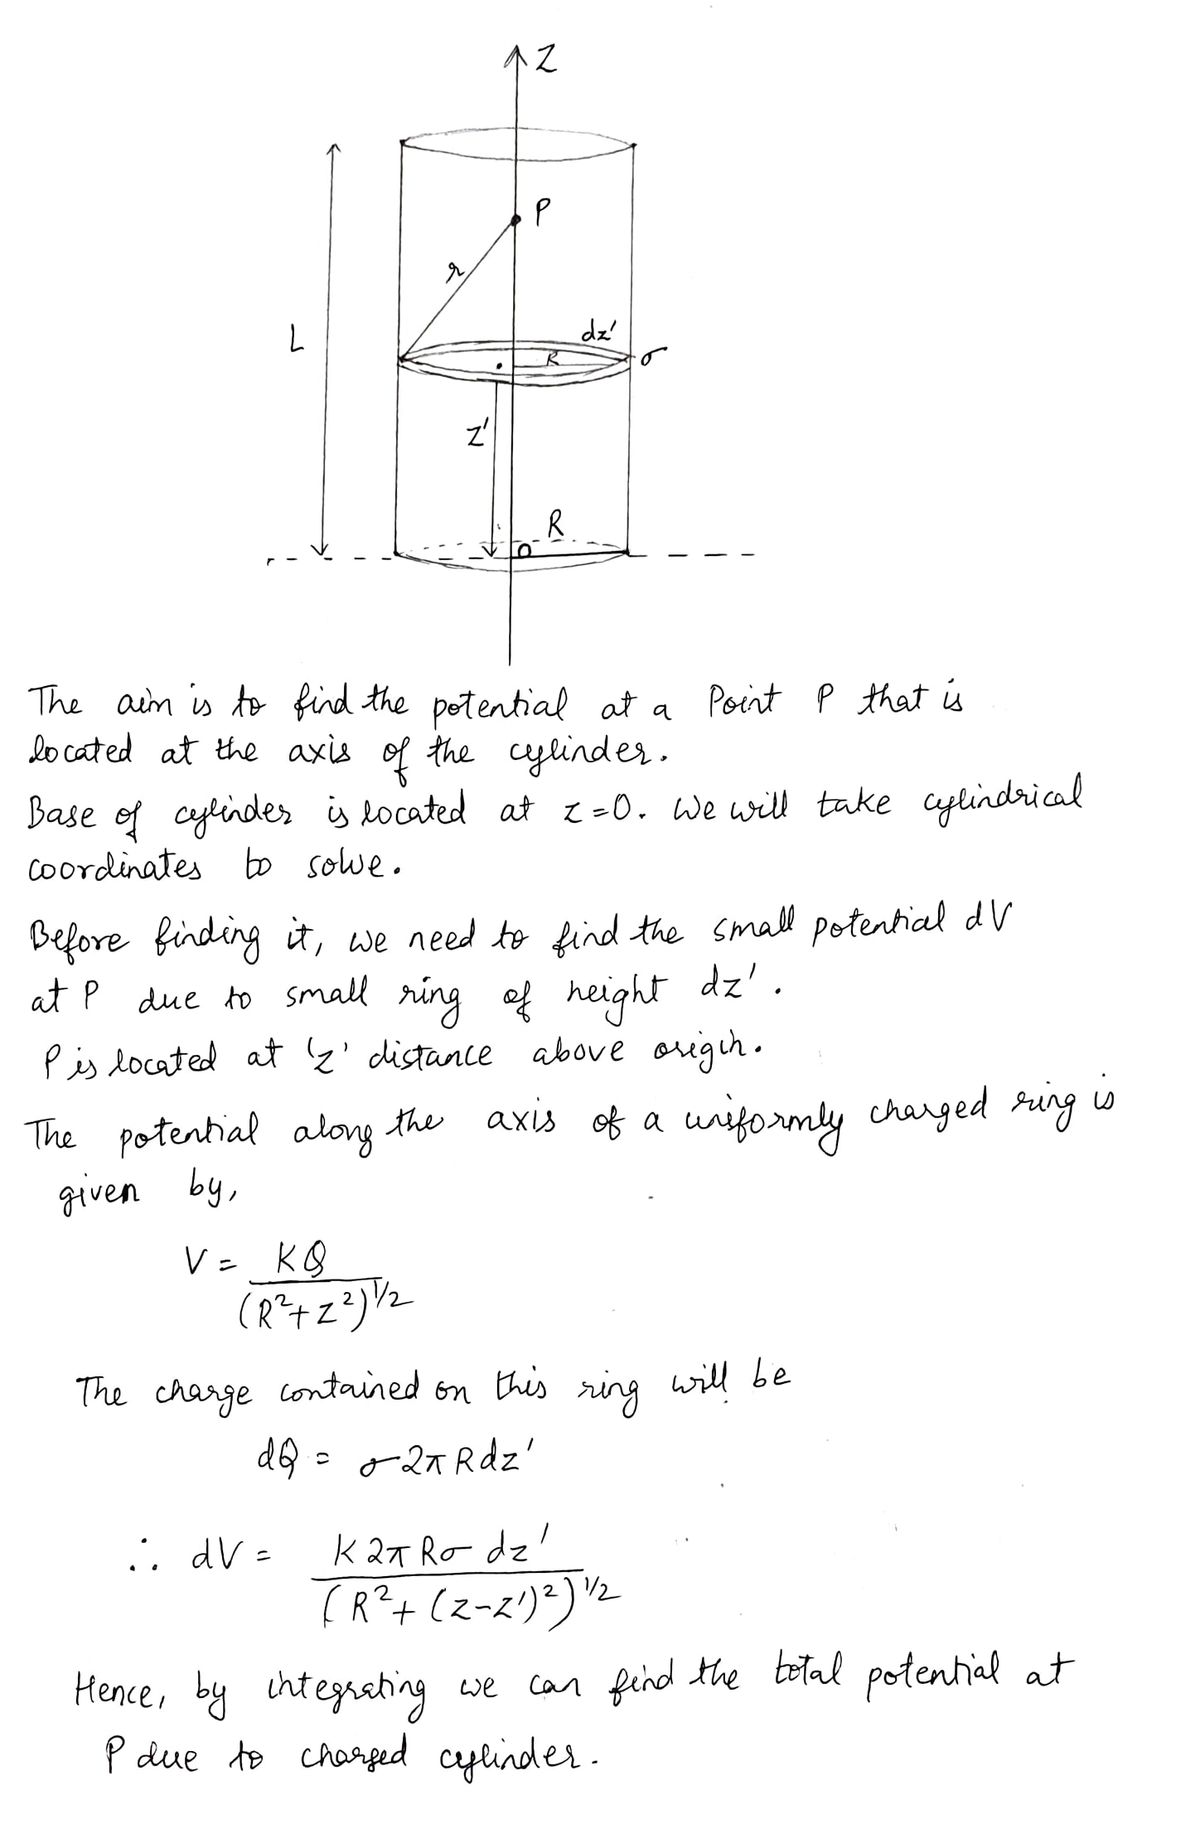 Z
P
r
L
dz'
R
σ
z'
R
O
The aim is to find the potential at a Point P that is
located at the axis of the cylinder.
Base of cylinder is located at z=0. We will take cylindrical
coordinates to solve.
Before finding it, we need to find the small potential dV
at P due to small ring of height dz'.
P is located at 'z' distance above origin.
The potential along the axis of a uniformly charged ring is
given by,
V = KQ / (R²+z²)^1/2
The charge contained on this ring will be
dQ = σ2πRdz'
∴ dV = K2πRσ dz' / (R²+(z-z')²)^1/2
Hence, by integrating we can find the total potential at
P due to charged cylinder.